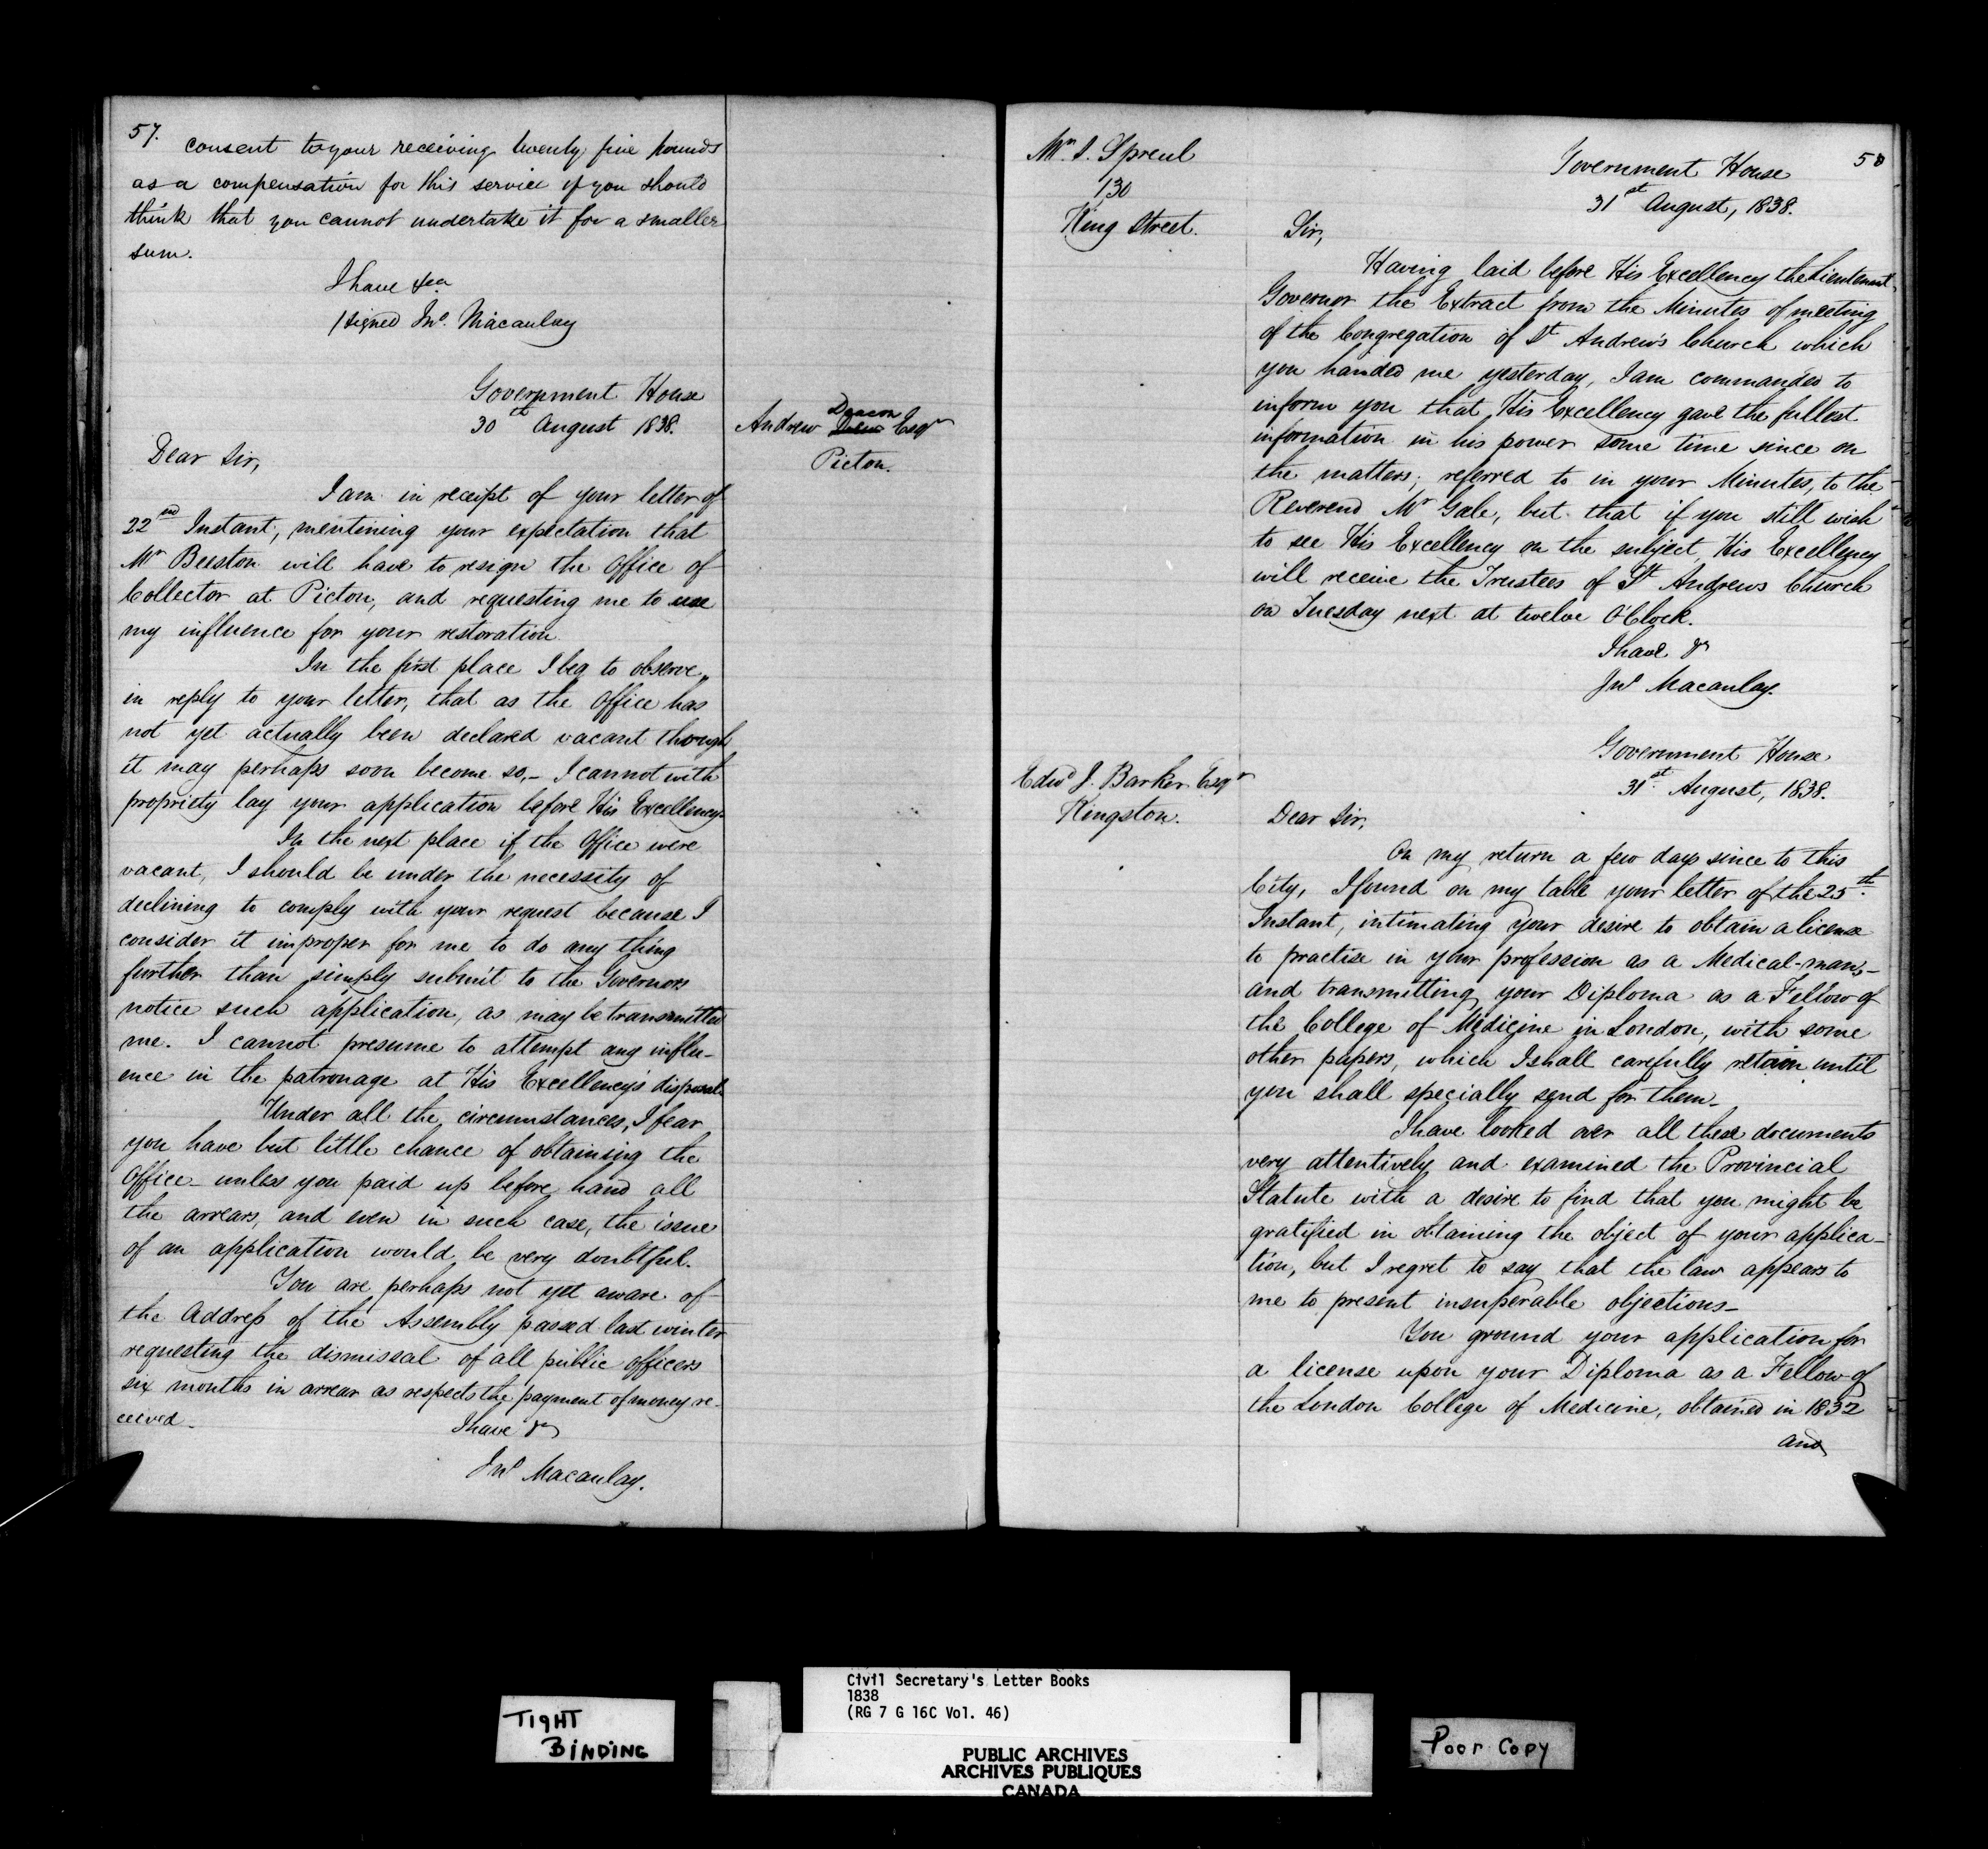 57.
consent to your receiving twenty five pounds
as a compensation for this service if you should
think that you cannot undertake it for a smaller
sum.
I have &ca
/signed Jno. Macaulay
Government House
30th August 1838.
Andrew Deacon Esqr
Picton.
Dear Sir,
I am in receipt of your letter of
22nd Instant, mentining your expectation that
Mr Beeston will have to resign the Office of
Collector at Picton, and requesting me to use
my influence for your restoration.
In the first place I beg to observe,,
in reply to your letter, that as the Office has
not yet actually been declared vacant though
it may perhaps soon become so,- I cannot with
propriety lay your application before His Excellency.
In the next place if the Office were
vacant, I should be under the necessity of
declining to comply with your request because I
consider it improper for me to do any thing
further than simply submit to the Governors
notice such application, as may be transmitted
me. I cannot presume to attempt any influ-
ence in the patronage at His Excellency's disposal.
Under all the circumstances, I fear
you have but little chance of obtaining the
Office - unless you paid up before hand all
the arrears, and even in such case, the issue
of an application would be very doubtful.
You are perhaps not yet aware of
the Address of the Assembly passed last winter
requesting the dismissal of all public Officers
six months in arrear as respects the payment of money re-
ceived -
I have &c
Jno Macaulay.
58
Mr. J. Spreul
130
King Street.
Government House
31st August, 1838.
Sir,
Having laid before His Excellency the Lieutenant
Governor the Extract from the Minutes of meeting
of the Congregation of St Andrew's Church which
you handed me yesterday, I am commanded to
inform you that His Excellency gave the fullest
information in his power some time since on
the matters, referred to in your Minutes, to the
Reverend Mr Gale, but that if you still wish
to see His Excellency on the subject, His Excellency
will receive the Trustees of St Andrews Church
on Tuesday next at twelve O'Clock.
I have &c
Jno Macaulay.
Government House
31st August, 1838.
Edwd J. Barker Esqr
Kingston.
Dear Sir,
On my return a few days since to this
City, I found on my table your letter of the 25th.
Instant, intimating your desire to obtain a license
to practise in your profession as a Medical-man,-
and transmitting your Diploma as a Fellow of
the College of Medicine in London, with some
other papers, which I shall carefully retain until
you shall specially send for them -
I have looked over all these documents
very attentively and examined the Provincial
Statute with a desire to find that you might be
gratified in obtaining the object of your applica-
tion, but I regret to say that the law appears to
me to present insuperable objections -
You ground your application for
a license upon your Diploma as a Fellow of
the London College of Medicine, obtained in 1832
and
TIGHT
BINDING
Civil Secretary's Letter Books
1838
(RG 7 G 16C Vol. 46)
PUBLIC ARCHIVES
ARCHIVES PUBLIQUES
CANADA
Poor Copy